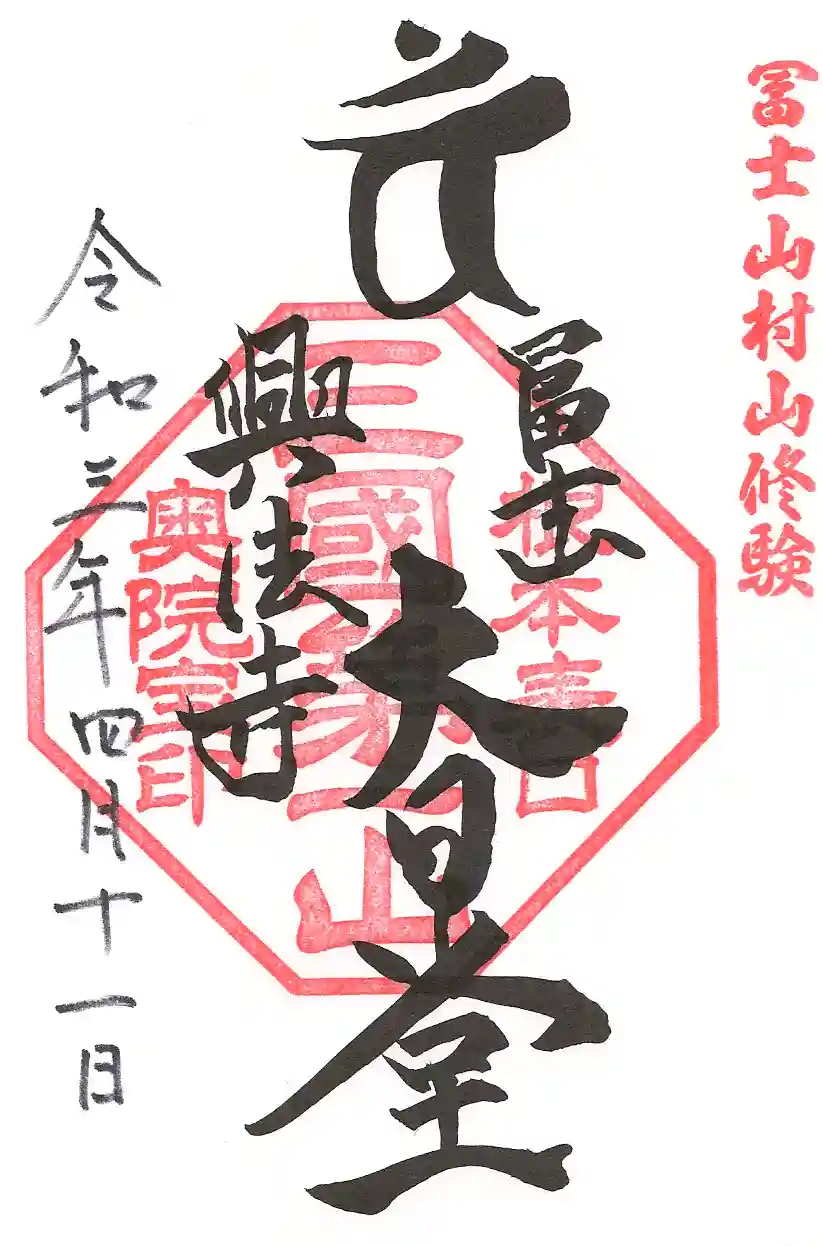 冨士山村山修験
冨士
大日堂
興法寺
根本表口
三國第一山
奥院宝印
令和三年四月十一日